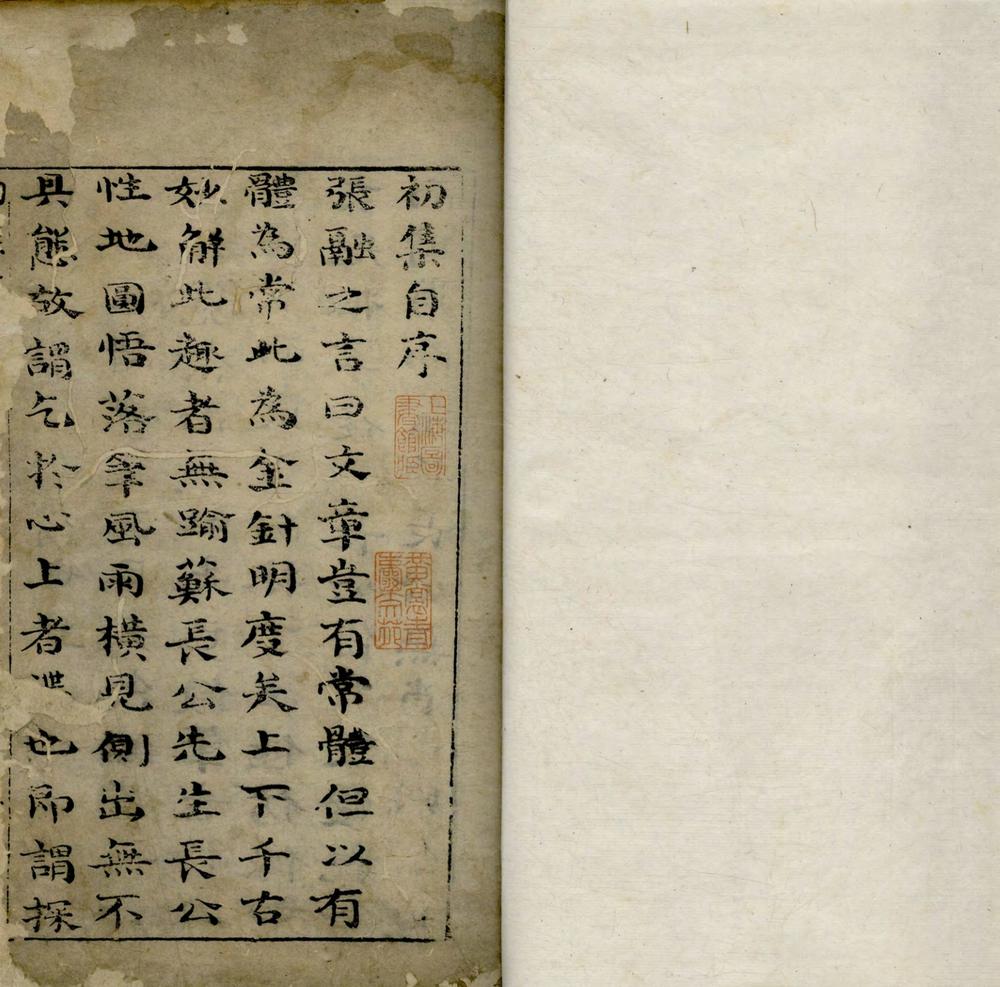 初集自序
上海圖書館藏
黃裳青囊文苑
張融之言曰文章豈有常體但以有
體為常此為金針明度矣上下千古
妙解此趣者無踰蘇長公先生長公
性地圓悟落筆風雨橫見側出無不
具態故謂乞於心上者也即謂探